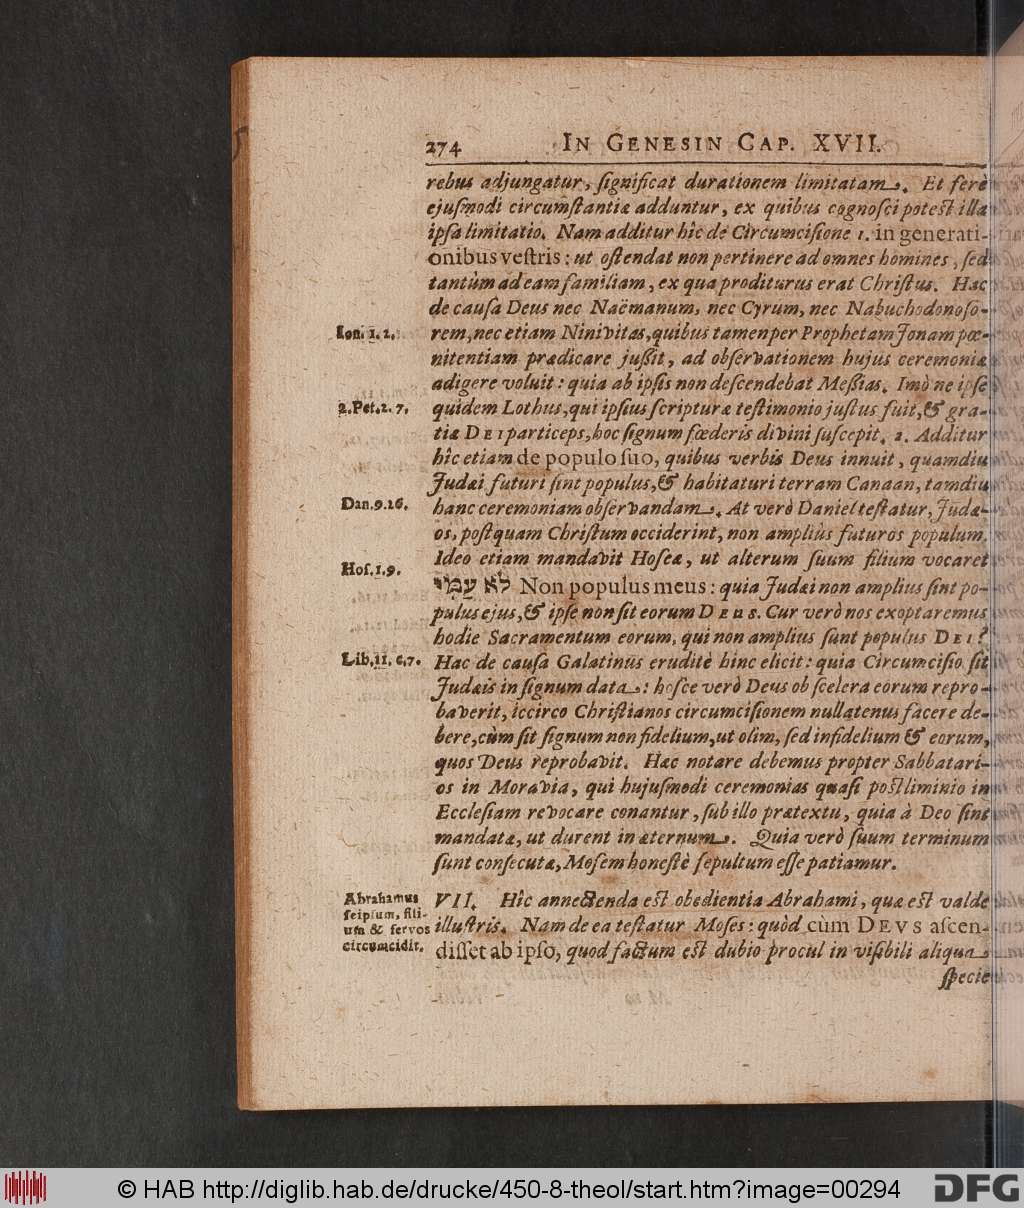 274 IN GENESIN CAP. XVII.
rebus adjungatur, ſignificat durationem limitatam. Et ferè
ejuſmodi circumſtantiæ adduntur, ex quibus cognoſci poteſt illa
ipſa limitatio. Nam additur hîc de Circumciſione 1. in generati-
onibus veſtris: ut oſtendat non pertinere ad omnes homines, ſed
tantùm ad eam familiam, ex qua proditurus erat Chriſtus. Hac
de cauſa Deus nec Naëmanum, nec Cyrum, nec Nabuchodonoſo-
Ion. 1. 2.
rem, nec etiam Ninivitas, quibus tamen per Prophetam Jonam pœ-
nitentiam prædicare juſſit, ad obſervationem hujus ceremoniæ
adigere voluit: quia ab ipſis non deſcendebat Meſſias. Imò ne ipſe
2. Pet. 2. 7.
quidem Lothus, qui ipſius ſcripturæ teſtimonio juſtus fuit, & gra-
tiæ DEI particeps, hoc ſignum fœderis divini ſuſcepit. 2. Additur
hîc etiam de populo ſuo, quibus verbis Deus innuit, quamdiu
Judæi futuri ſint populus, & habitaturi terram Canaan, tamdiu
Dan. 9. 26.
hanc ceremoniam obſervandam. At verò Daniel teſtatur, Judæ-
os, poſtquam Chriſtum occiderint, non ampliùs futuros populum.
Ideo etiam mandavit Hoſeæ, ut alterum ſuum filium vocaret
Hoſ. 1. 9.
לֹא עַמִּי Non populus meus: quia Judæi non amplius ſint po-
pulus ejus, & ipſe non ſit eorum DEUS. Cur verò nos exoptaremus
hodie Sacramentum eorum, qui non amplius ſunt populus DEI?
Lib. 11. c. 7.
Hac de cauſa Galatinus eruditè hinc elicit: quia Circumciſio ſit
Judæis in ſignum data: hoſce verò Deus ob ſcelera eorum repro-
baverit, iccirco Chriſtianos circumciſionem nullatenus facere de-
bere, cùm ſit ſignum non fidelium, ut olim, ſed infidelium & eorum,
quos Deus reprobavit. Hæc notare debemus propter Sabbatari-
os in Moravia, qui hujuſmodi ceremonias quaſi poſtliminio in
Eccleſiam revocare conantur, ſub illo prætextu, quia à Deo ſint
mandatæ, ut durent in æternum. Quia verò ſuum terminum
ſunt conſecutæ, Moſem honeſtè ſepultum eſſe patiamur.
Abrahamus
ſeipſum, fili-
um & ſervos
circumcidit.
VII. Hîc annectenda eſt obedientia Abrahami, quæ eſt valde
illuſtris. Nam de ea teſtatur Moſes: quòd cùm DEVS aſcen-
diſſet ab ipſo, quod factum eſt dubio procul in viſibili aliqua
ſpecie
© HAB http://diglib.hab.de/drucke/450-8-theol/start.htm?image=00294
DFG